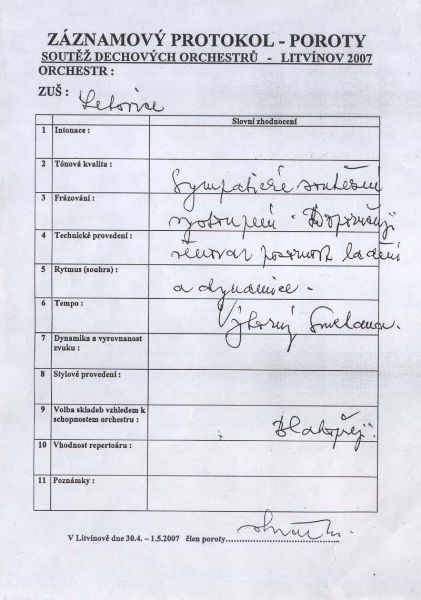 ZÁZNAMOVÝ PROTOKOL - POROTY
SOUTĚŽ DECHOVÝCH ORCHESTRŮ - LITVÍNOV 2007
ORCHESTR :
ZUŠ : Letovice
Slovní zhodnocení
1 Intonace :
2 Tónová kvalita :
Sympatické soutěžní
3 Frázování :
vystoupení. Doporučuji
4 Technické provedení :
věnovat pozornost ladění
5 Rytmus (souhra) :
a dynamice.
6 Tempo :
Výborný Smetana.
7 Dynamika a vyrovnanost
zvuku :
8 Stylové provedení :
9 Volba skladeb vzhledem k
schopnostem orchestru :
Blahopřeji.
10 Vhodnost repertoáru :
11 Poznámky :
V Litvínově dne 30.4. – 1.5.2007 člen poroty